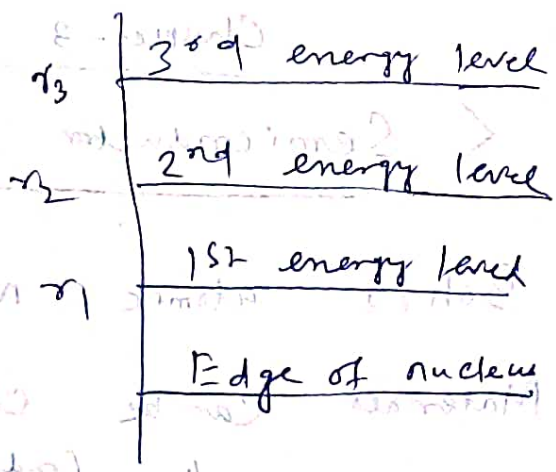 r3 3rd energy level
r2 2nd energy level
r1 1st energy level
Edge of nucleus